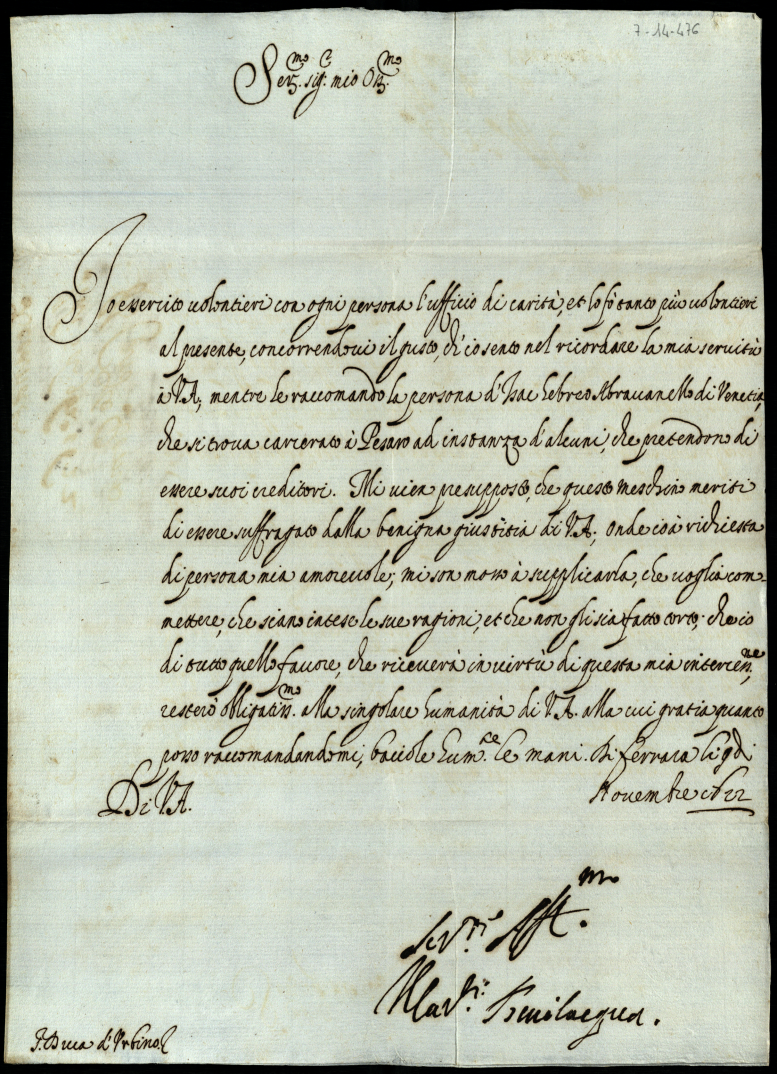 7-14-476
Ser.mo sig.r mio Oss.mo
Io essercito volontieri con ogni persona l'ufficio di carità, et lo fò tanto più volontieri
al presente, concorrendovi il gusto, ch'io sento nel ricordare la mia servitù
à V.A., mentre le raccomando la persona d'Isac hebreo Abravanello di Venetia,
che si trova carcerato à Pesaro ad instanza d'alcuni, che pretendono di
essere suoi creditori. Mi vien presupposto, che questo meschino meriti
di essere suffragato dalla benigna giustitia di V.A., onde io à richiesta
di persona mia amorevole, mi son mosso à supplicarla, che voglia com-
mettere, che siano intese le sue ragioni, et che non gli sia fatto torto; che io
di tutto quello favore, che riceverà in virtù di questa mia intercess.ne,
resterò obligatiss.mo alla singolare humanità di V.A. alla cui gratia quanto
posso raccomandandomi, bacio le hum.te le mani. Di Ferrara li 9 di
Novembre 1622
Di V.A.
Ser.re Aff.mo
Bevilacqua.
S. Duca d'Urbino